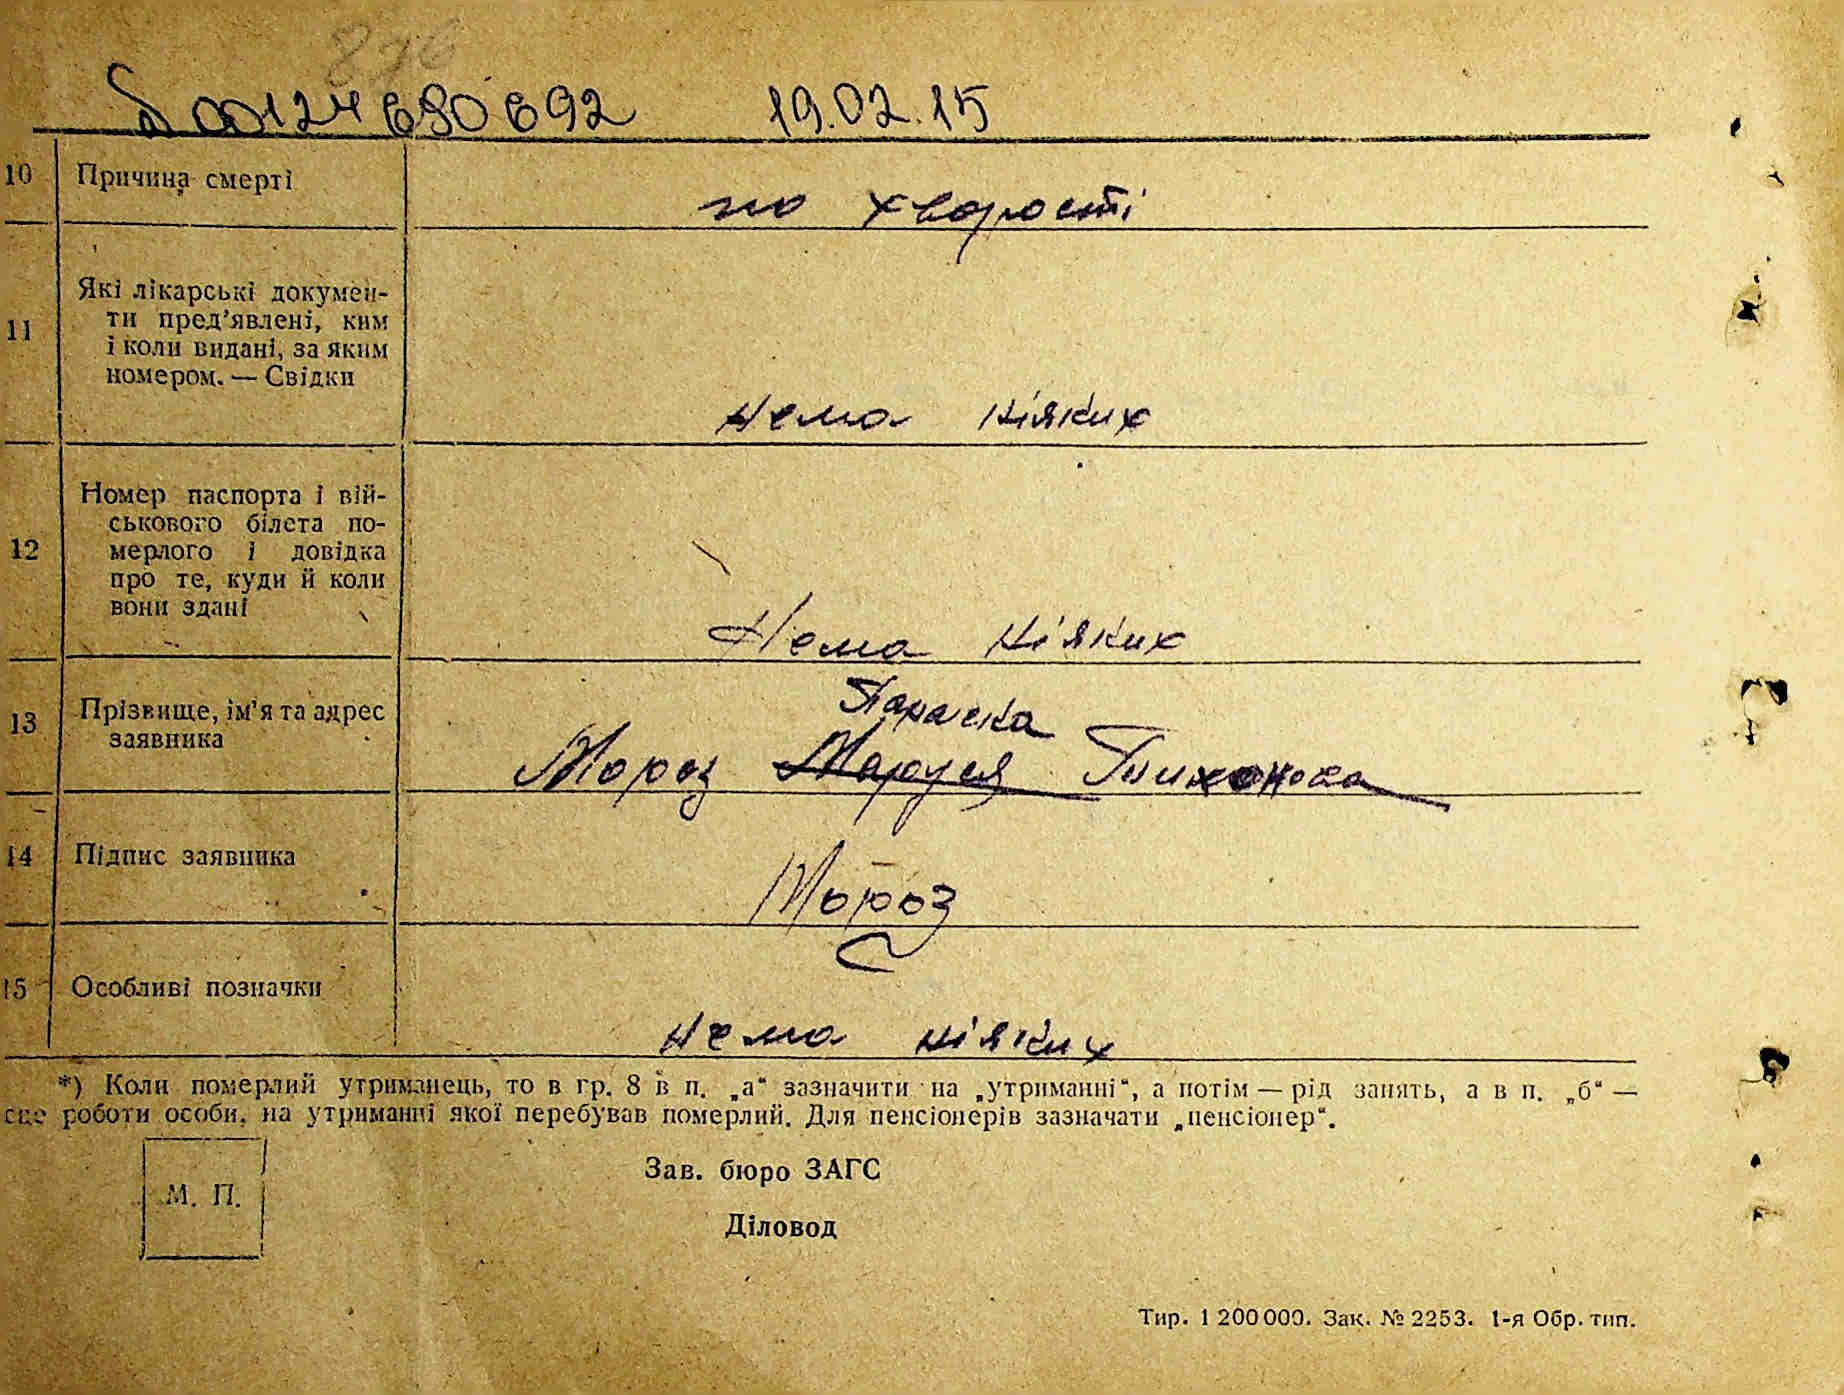 826
00124680692 19.02.15
10 Причина смерті по хворості
11 Які лікарські докумен-
ти пред'явлені, ким
і коли видані, за яким
номером. — Свідки
Нема ніяких
12 Номер паспорта і вій-
ськового білета по-
мерлого і довідка
про те, куди й коли
вони здані
Нема ніяких
13 Прізвище, ім'я та адрес
заявника
Параска
Мороз Маруся Тихонова
14 Підпис заявника Мороз
15 Особливі позначки
нема ніяких
*) Коли померлий утриманець, то в гр. 8 в п. „а“ зазначити на „утриманні“, а потім — рід занять, а в п. „б“ —
сце роботи особи, на утриманні якої перебував померлий. Для пенсіонерів зазначати „пенсіонер“.
М. П.
Зав. бюро ЗАГС
Діловод
Тир. 1 200 000. Зак. № 2253. 1-я Обр. тип.